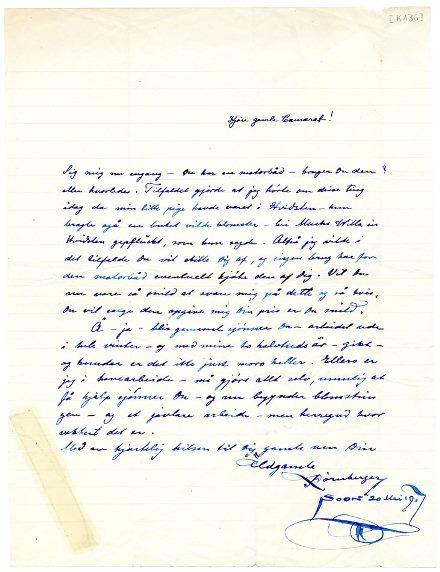 [K136]
Kjøre gamle Camarat!
Sig mig nu engang - Du har en motorbåd - bruger Du den?
eller hvorledes. Tilfeldet gjorde at jeg hørte om disse ting
idag da min lille pige havde været i Hvidsten - hun
bragte også en buket vilde blomster - bei Munks Villa in
Hvidsten gepflückt, som hun sagde. Altså jeg vilde i
det tilfelde Du vil skille Dig af, og ingen brug har for
den motorbåd eventuelt kjøbe den af Dig. Vil Du
nu være så snild at svare mig på dette og så hvis
Du vil sælge den opgive mig Din pris er Du snild.
Å - ja - blir gammel sjönner Du - arbeidet ude
i hele vinter - og med mine to halvtreds år - gikt -
og hunder er det ikke just moro heller. Ellers er
jeg i havearbeide - må gjöre allt selv, umulig at
få hjelp sjönner Du - og nu begynder blomstrin
gen - og et jævlare arbeide - men herregud hvor
vakkert det er.
Med en hjertelig hilsen til Dig gamle ven Din
Eldgamle
Dörnberger
Soon 20 Mai 19